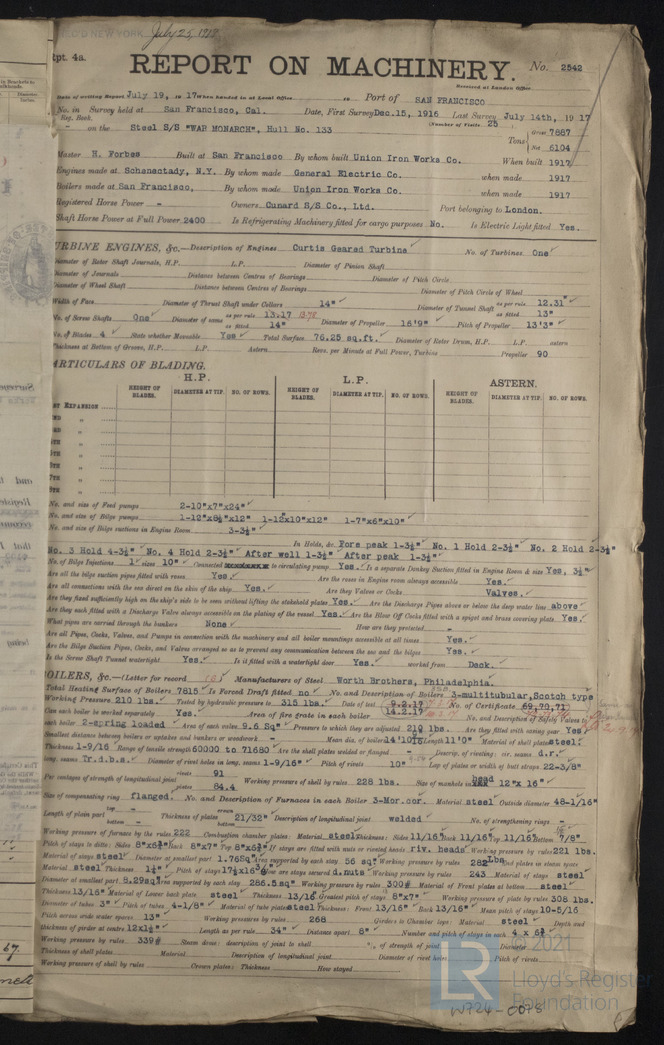 REC'D NEW YORK July 25, 1917
Rpt. 4a.
REPORT ON MACHINERY. No. 2542
Received at London Office
Date of writing Report July 19, 1917 When handed in at Local Office 19 Port of SAN FRANCISCO
No. in Survey held at San Francisco, Cal. Date, First Survey Dec.15, 1916 Last Survey July 14th, 1917
Reg. Book. (Number of Visits 25
on the Steel S/S "WAR MONARCH", Hull No. 133 Tons Gross 7887 Net 6104
Master H. Forbes Built at San Francisco By whom built Union Iron Works Co. When built 1917
Engines made at Schenectady, N.Y. By whom made General Electric Co. when made 1917
Boilers made at San Francisco, By whom made Union Iron Works Co. when made 1917
Registered Horse Power - Owners Cunard S/S Co., Ltd. Port belonging to London.
Shaft Horse Power at Full Power 2400 Is Refrigerating Machinery fitted for cargo purposes No. Is Electric Light fitted Yes.
TURBINE ENGINES, &c.—Description of Engines Curtis Geared Turbine No. of Turbines One
Diameter of Rotor Shaft Journals, H.P. L.P. Diameter of Pinion Shaft
Diameter of Journals Distance between Centres of Bearings Diameter of Pitch Circle
Diameter of Wheel Shaft Distance between Centres of Bearings Diameter of Pitch Circle of Wheel
Width of Face Diameter of Thrust Shaft under Collars 14" Diameter of Tunnel Shaft as per rule 12.31" as fitted 13"
No. of Screw Shafts One Diameter of same as per rule 13.17 13.78 as fitted 14" Diameter of Propeller 16'9" Pitch of Propeller 13'3"
No. of Blades 4 State whether Moveable Yes Total Surface 76.25 sq.ft. Diameter of Rotor Drum, H.P. L.P. Astern
Thickness at Bottom of Groove, H.P. L.P. Astern Revs. per Minute at Full Power, Turbine Propeller 90
PARTICULARS OF BLADING.
H.P. L.P. ASTERN.
HEIGHT OF BLADES. DIAMETER AT TIP. NO. OF ROWS. HEIGHT OF BLADES. DIAMETER AT TIP. NO. OF ROWS. HEIGHT OF BLADES. DIAMETER AT TIP. NO. OF ROWS.
1ST EXPANSION
2ND "
3RD "
4TH "
5TH "
6TH "
7TH "
8TH "
No. and size of Feed pumps 2-10"x7"x24"
No. and size of Bilge pumps 1-12"x8½"x12" 1-12x10"x12" 1-7"x6"x10"
No. and size of Bilge suctions in Engine Room 3-3½"
In Holds, &c. Fore peak 1-3½" No. 1 Hold 2-3½" No. 2 Hold 2-3½"
No. 3 Hold 4-3½" No. 4 Hold 2-3½" After well 1-3½" After peak 1-3½"
No. of Bilge Injections 1 sizes 10" Connected to circulating pump Yes. Is a separate Donkey Suction fitted in Engine Room & size Yes, 3½"
Are all the bilge suction pipes fitted with roses Yes. Are the roses in Engine room always accessible Yes.
Are all connections with the sea direct on the skin of the ship Yes. Are they Valves or Cocks Valves.
Are they fixed sufficiently high on the ship's side to be seen without lifting the stokehold plates Yes. Are the Discharge Pipes above or below the deep water line above
Are they each fitted with a Discharge Valve always accessible on the plating of the vessel Yes. Are the Blow Off Cocks fitted with a spigot and brass covering plate Yes.
What pipes are carried through the bunkers None How are they protected -
Are all Pipes, Cocks, Valves, and Pumps in connection with the machinery and all boiler mountings accessible at all times Yes.
Are the Bilge Suction Pipes, Cocks, and Valves arranged so as to prevent any communication between the sea and the bilges Yes.
Is the Screw Shaft Tunnel watertight Yes. Is it fitted with a watertight door Yes. worked from Deck.
BOILERS, &c.—(Letter for record (S) Manufacturers of Steel Worth Brothers, Philadelphia.
Total Heating Surface of Boilers 7815 Is Forced Draft fitted no No. and Description of Boilers 3-multitubular, Scotch type
Working Pressure 210 lbs. Tested by hydraulic pressure to 315 lbs. Date of test 9.2.17 14.2.17 No. of Certificate 69,70,71
Can each boiler be worked separately Yes. Area of fire grate in each boiler No. and Description of Safety Valves to
each boiler 2-spring loaded Area of each valve 9.6 Sq" Pressure to which they are adjusted 210 lbs. Are they fitted with easing gear Yes
Smallest distance between boilers or uptakes and bunkers or woodwork - Mean dia. of boilers 14'10½" Length 11'0" Material of shell plates steel.
Thickness 1-9/16 Range of tensile strength 60000 to 71680 Are the shell plates welded or flanged Descrip. of riveting: cir. seams d.r.
long. seams Tr.d.b.s. Diameter of rivet holes in long. seams 1-9/16" Pitch of rivets 10" Lap of plates or width of butt straps 22-3/8"
Per centages of strength of longitudinal joint rivets 91 plates 84.4 Working pressure of shell by rules 228 lbs. Size of manhole in head 12"x 16"
Size of compensating ring flanged. No. and Description of Furnaces in each Boiler 3-Mor.cor. Material steel Outside diameter 48-1/16"
Length of plain part top - bottom - Thickness of plates crown bottom 21/32" Description of longitudinal joint welded No. of strengthening rings -
Working pressure of furnace by the rules 222 Combustion chamber plates: Material steel Thickness: Sides 11/16" Back 11/16" Top 11/16" Bottom 7/8"
Pitch of stays to ditto: Sides 8"x6¾" Back 8"x7" Top 8"x6¾" If stays are fitted with nuts or riveted heads riv. heads Working pressure by rules 221 lbs.
Material of stays steel Diameter at smallest part 1.76Sq" Area supported by each stay 56 sq" Working pressure by rules 282 lbs End plates in steam space
Material steel Thickness 1¼" Pitch of stays 17½x16⅜" How are stays secured d.nuts Working pressure by rules 243 Material of stays steel
Diameter at smallest part 8.29sq Area supported by each stay 286.5sq Working pressure by rules 300# Material of Front plates at bottom steel
Thickness 13/16" Material of Lower back plate steel Thickness 13/16" Greatest pitch of stays 8"x7" Working pressure of plate by rules 308 lbs.
Diameter of tubes 3" Pitch of tubes 4-1/8" Material of tube plates steel Thickness: Front 13/16" Back 13/16" Mean pitch of stays 10-5/16
Pitch across wide water spaces 13" Working pressures by rules 268 Girders to Chamber tops: Material steel Depth and
thickness of girder at centre 12x1½" Length as per rule 34" Distance apart 8" Number and pitch of stays in each 4 x 6¾
Working pressure by rules 339# Steam dome: description of joint to shell % of strength of joint Diameter
Thickness of shell plates Material Description of longitudinal joint Diameter of rivet holes Pitch of rivets
Working pressure of shell by rules Crown plates: Thickness How stayed
© 2021
LR Lloyd's Register
Foundation
W724-0078